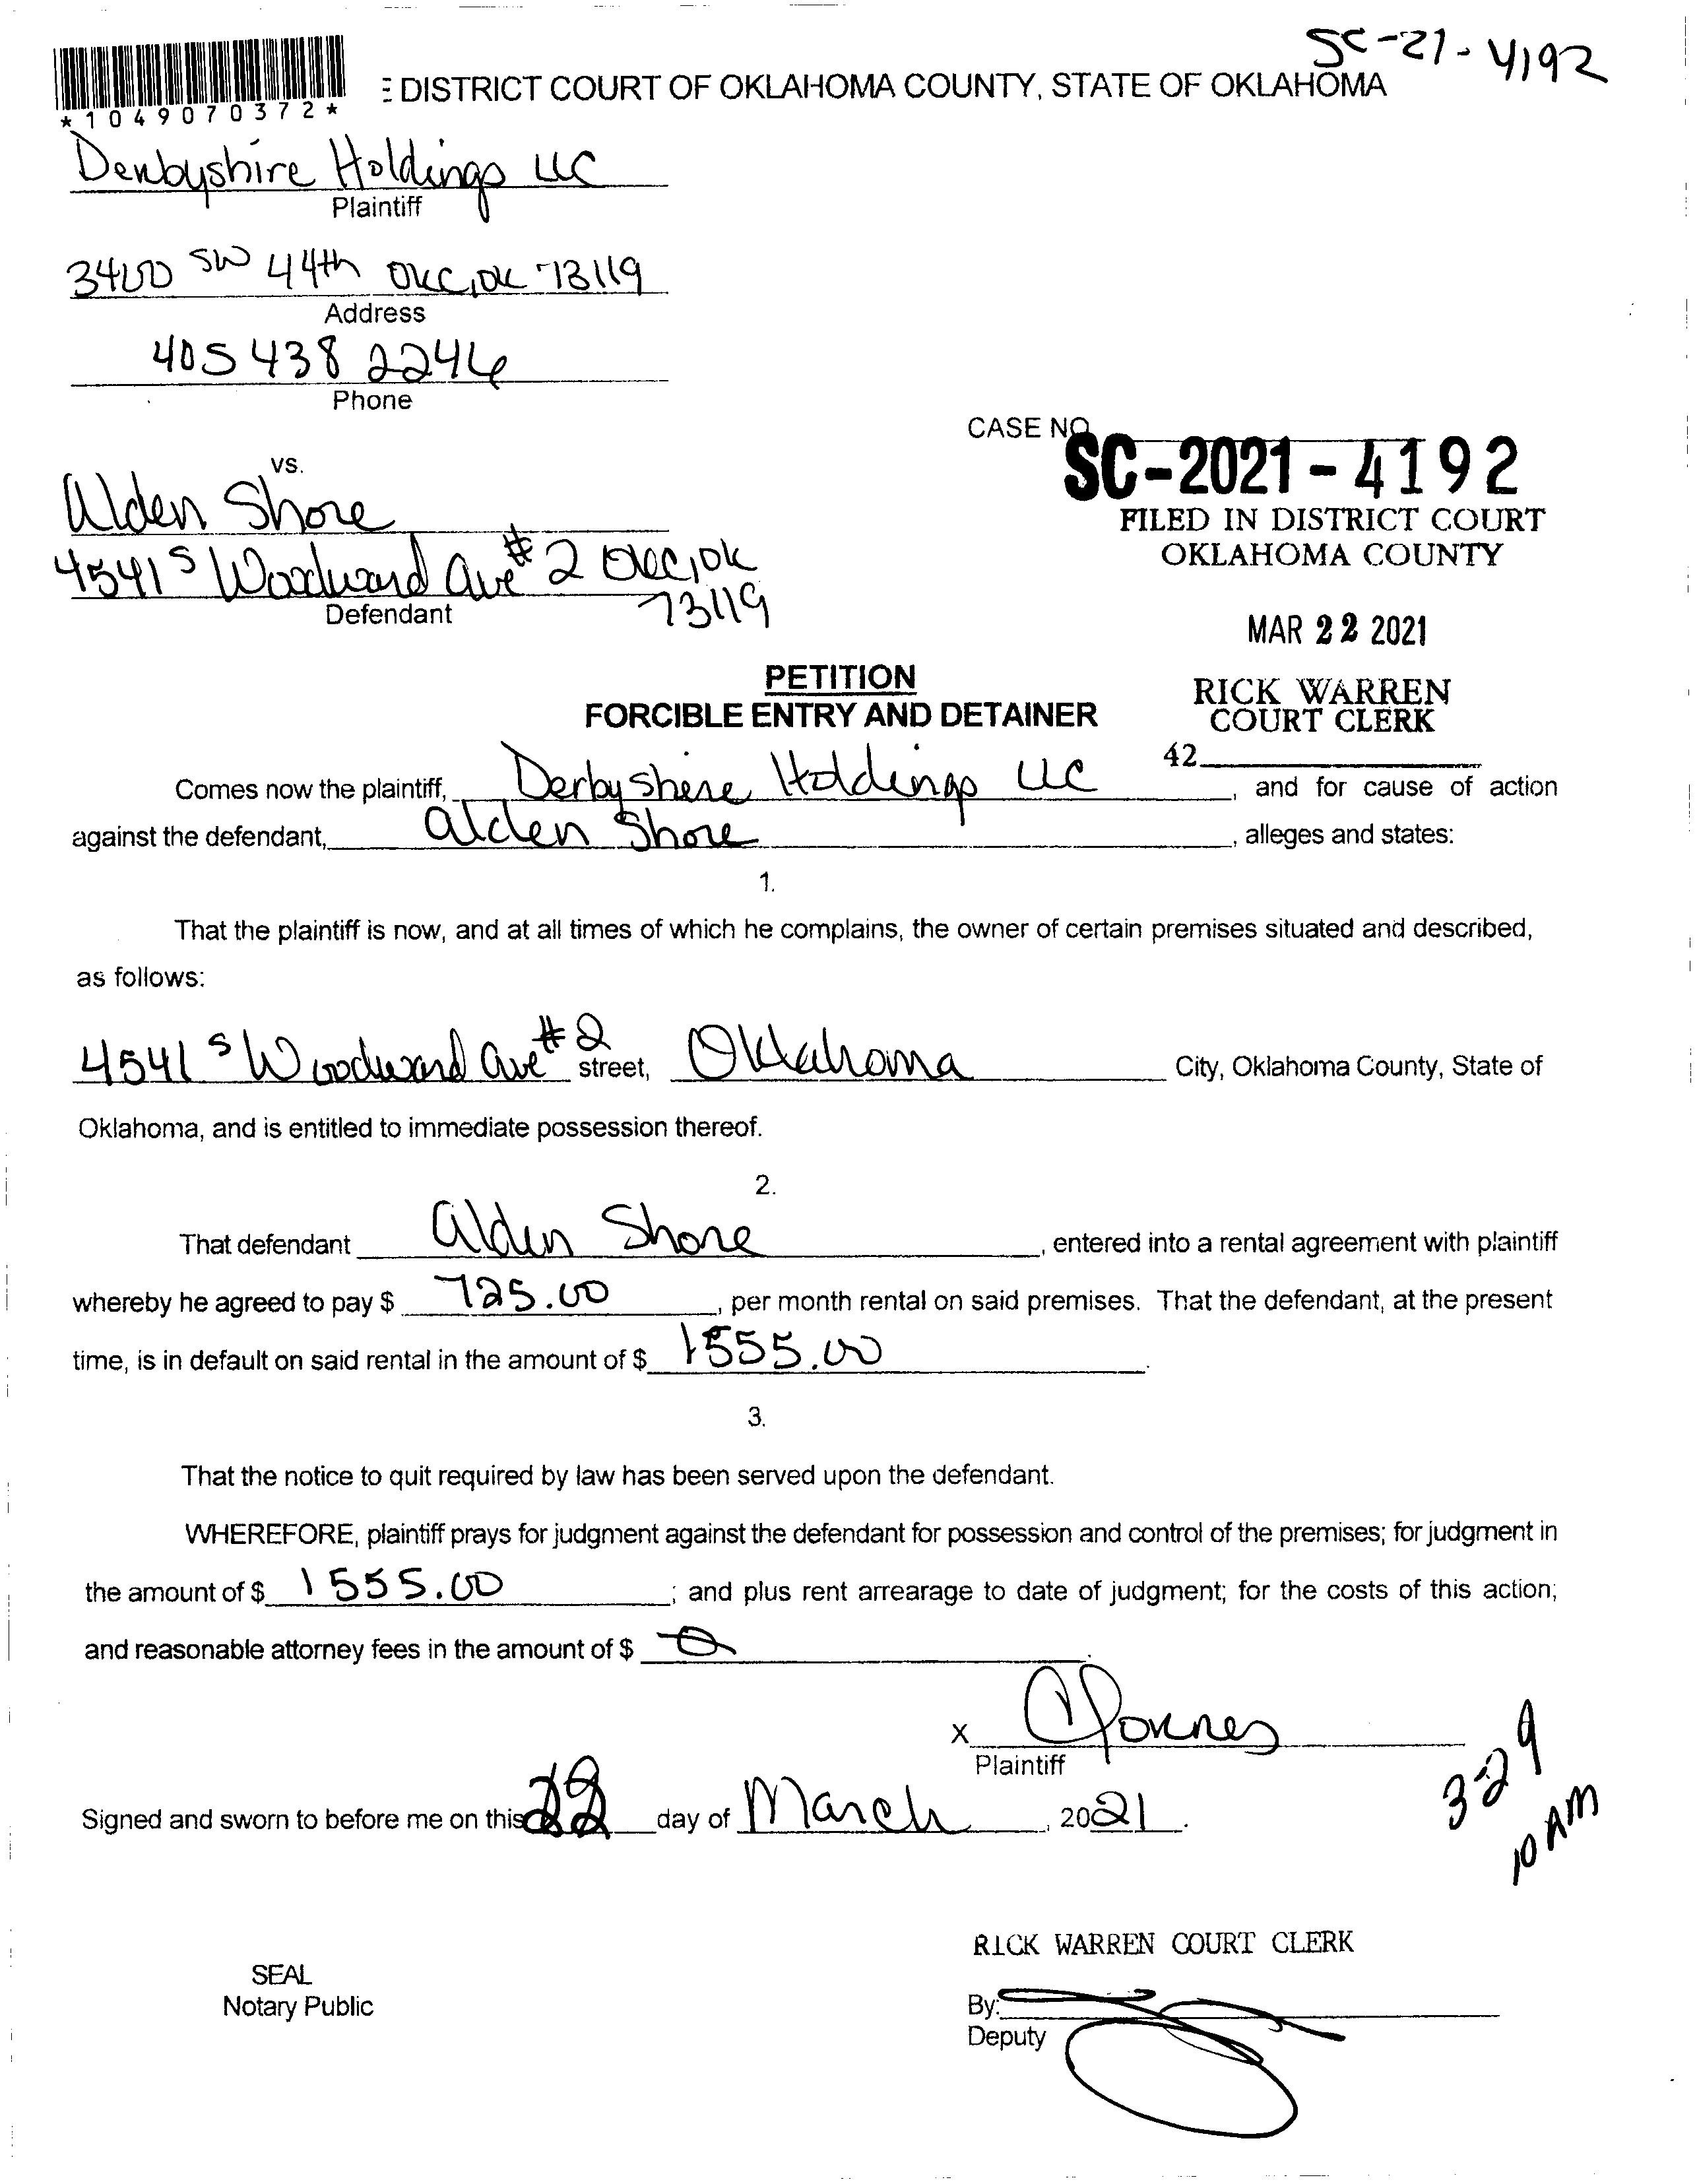 SC-21-4192
*1049070372*
DISTRICT COURT OF OKLAHOMA COUNTY, STATE OF OKLAHOMA
Derbyshire Holdings LLC
Plaintiff
3400 SW 44th OKC, OK 73119
Address
405 438 2246
Phone
CASE NO
SC-2021-4192
vs.
FILED IN DISTRICT COURT
OKLAHOMA COUNTY
Alden Shore
4541 S Woodward Ave #2 OKC, OK
73119
Defendant
MAR 22 2021
PETITION
FORCIBLE ENTRY AND DETAINER
RICK WARREN
COURT CLERK
42
Comes now the plaintiff, Derbyshire Holdings LLC, and for cause of action
against the defendant, Alden Shore, alleges and states:
1.
That the plaintiff is now, and at all times of which he complains, the owner of certain premises situated and described,
as follows:
4541 S Woodward Ave #2 street, Oklahoma City, Oklahoma County, State of
Oklahoma, and is entitled to immediate possession thereof.
2.
That defendant Alden Shore, entered into a rental agreement with plaintiff
whereby he agreed to pay $ 725.00, per month rental on said premises. That the defendant, at the present
time, is in default on said rental in the amount of $ 1555.00.
3.
That the notice to quit required by law has been served upon the defendant.
WHEREFORE, plaintiff prays for judgment against the defendant for possession and control of the premises; for judgment in
the amount of $ 1555.00; and plus rent arrearage to date of judgment; for the costs of this action;
and reasonable attorney fees in the amount of $ 0.
X
Plaintiff
Signed and sworn to before me on this 22 day of March, 2021.
3-29
10 AM
RICK WARREN COURT CLERK
SEAL
Notary Public
By:
Deputy